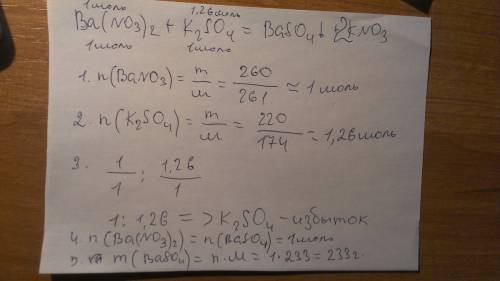 1моль 1,26моль
Ba(NO3)2 + K2SO4 = BaSO4↓ + 2KNO3
1моль 1моль
1. n(BaNO3) = m/M = 260/261 ≈ 1 моль
2. n(K2SO4) = m/M = 220/174 = 1,26моль
3. 1/1 : 1,26/1
1 : 1,26 => K2SO4 - избыток
4. n(Ba(NO3)2) = n(BaSO4) = 1моль
5. m(BaSO4) = n·M = 1·233 = 233г.